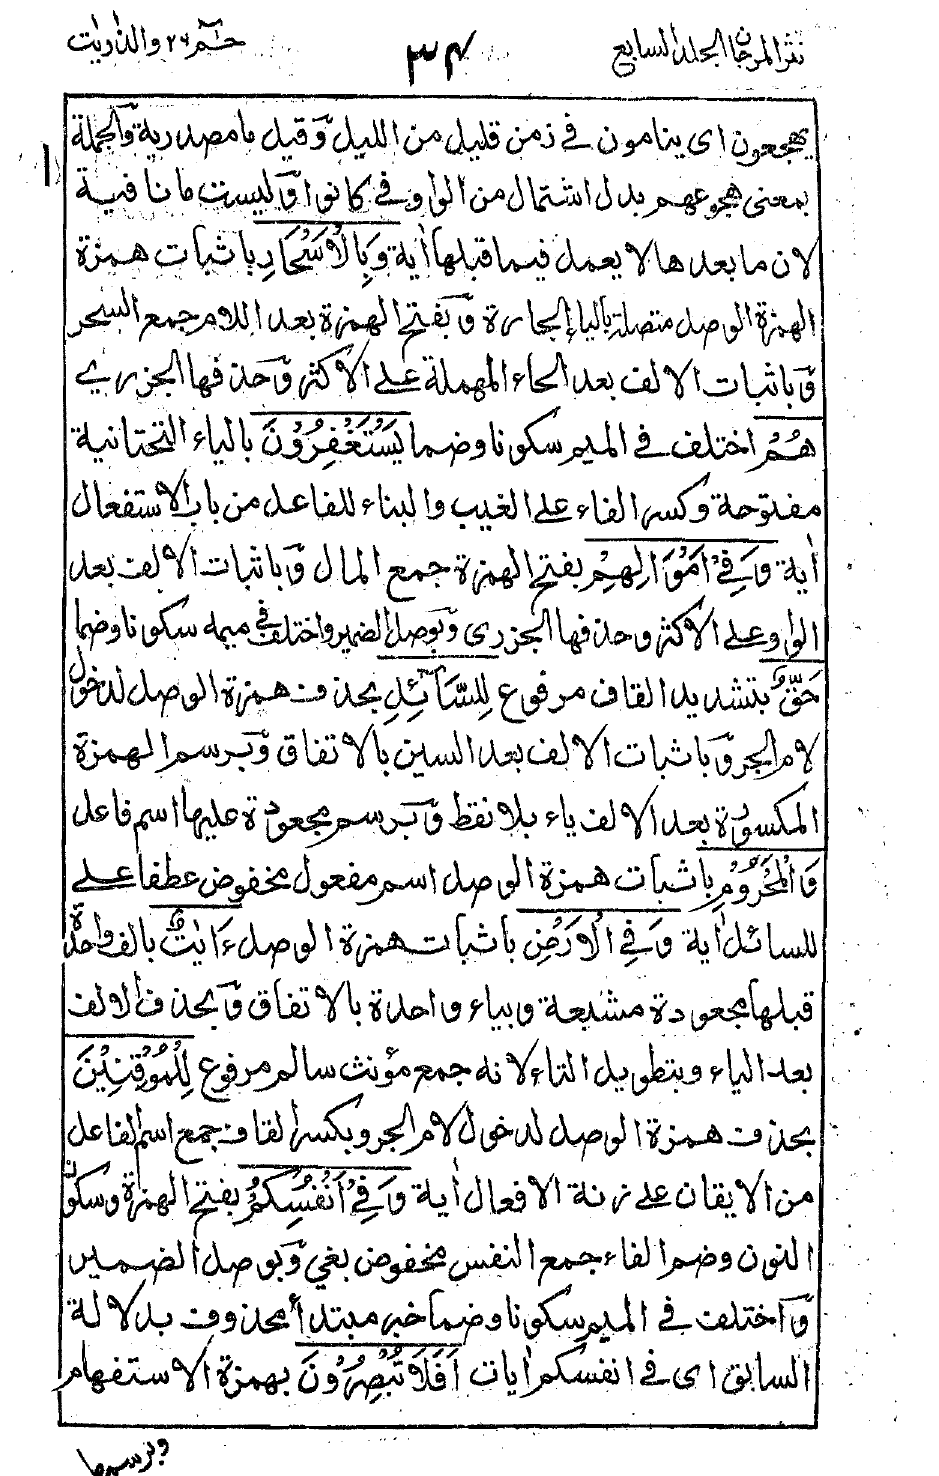 نثر المرجان الجلد السابع
٣٤
حٰم ٢٦ والذٰريٰت
يهجعون اى ينامون فى زمن قليل من الليل وَّقيل ما مصدرية وَّالجملة
بمعنى هجوعهم بدل اشتمال من الواو فى كانوا وَّليست ما نافية
لان ما بعدها لا يعمل فيما قبلها اٰية وَبِالْاَسْحَارِ باثبات همزة
الهمزة الوصل متصلة بالياء الجارة وَّبفتح الهمزة بعد اللام جمع السحر
وَّباثبات الالف بعد الحاء المهملة على الاكثر وَّحذفها الجزرى
هُمْ اختلف فى الميم سكونا وضما يَسْتَغْفِرُوْنَ بالياء التحتانية
مفتوحة وكسر الفاء على الغيب والبناء للفاعل من باب الاستفعال
اٰية وَفِىْ اَمْوَالِهِمْ بفتح الهمزة جمع المال وَّباثبات الالف بعد
الواو على الاكثر وحذفها الجزرى وَّبوصل الضمير واختلف فى ميمه سكونا وضما
حَقٌّ بتشديد القاف مرفوع لِلسَّآئِلِ بحذف همزة الوصل لدخول
لام الجر وَّباثبات الالف بعد السين بالاتفاق وَّبرسم الهمزة
المكسورة بعد الالف ياء بلا نقط وَّبرسم مجعودة عليها اسم فاعل
وَالْمَحْرُوْمِ باثبات همزة الوصل اسم مفعول مخفوض عطفا على
للسائل اٰية وَفِى الْاَرْضِ باثبات همزة الوصل ءَايٰتٌ بالف واحدة
قبلها مجعودة مشبعة وبياء واحدة بالاتفاق وَّبحذف الالف
بعد الياء وبتطويل التاء لانه جمع مؤنث سالم مرفوع لِلْمُوْقِنِيْنَ
بحذف همزة الوصل لدخول لام الجر وبكسر القاف جمع اسم الفاعل
من الايقان على زنة الافعال اٰية وَفِىْ اَنْفُسِكُمْ بفتح الهمزة وسكون
النون وضم الفاء جمع النفس مخفوض بفي وَّبوصل الضمير
وَّاختلف فى الميم سكونا وضما خبر مبتدأ محذوف بدلالة
السابق اى فى انفسكم اٰيات اَفَلَا تُبْصِرُوْنَ بهمزة الاستفهام
وبرسمها